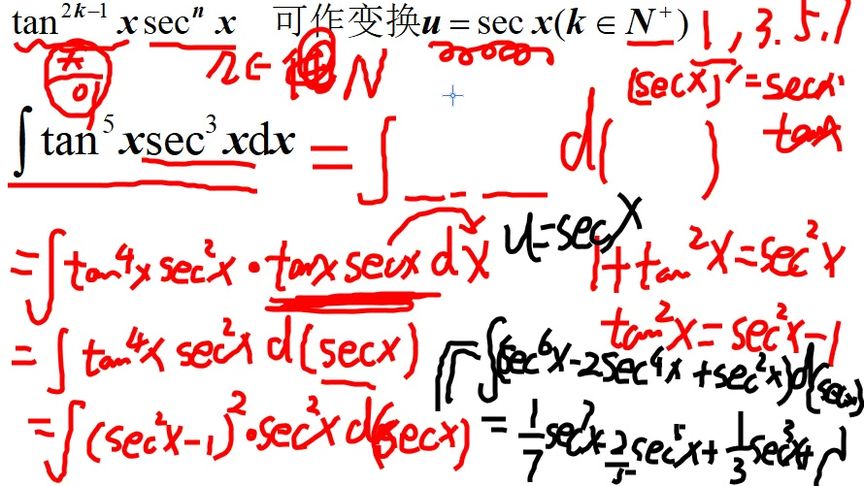 tan^{2k-1} x sec^n x 可作变换u = sec x(k ∈ N^+) 1, 3. 5. 7
n ∈ N
(sec x)' = sec x · tan x
∫ tan^5 x sec^3 x dx = ∫ _ _ _ d( )
= ∫ tan^4 x sec^2 x · tan x sec x dx
u = sec x
1 + tan^2 x = sec^2 x
tan^2 x = sec^2 x - 1
= ∫ tan^4 x sec^2 x d(sec x)
= ∫ (sec^2 x - 1)^2 · sec^2 x d(sec x)
∫ (sec^6 x - 2sec^4 x + sec^2 x) d(sec x)
= 1/7 sec^7 x - 2/5 sec^5 x + 1/3 sec^3 x +